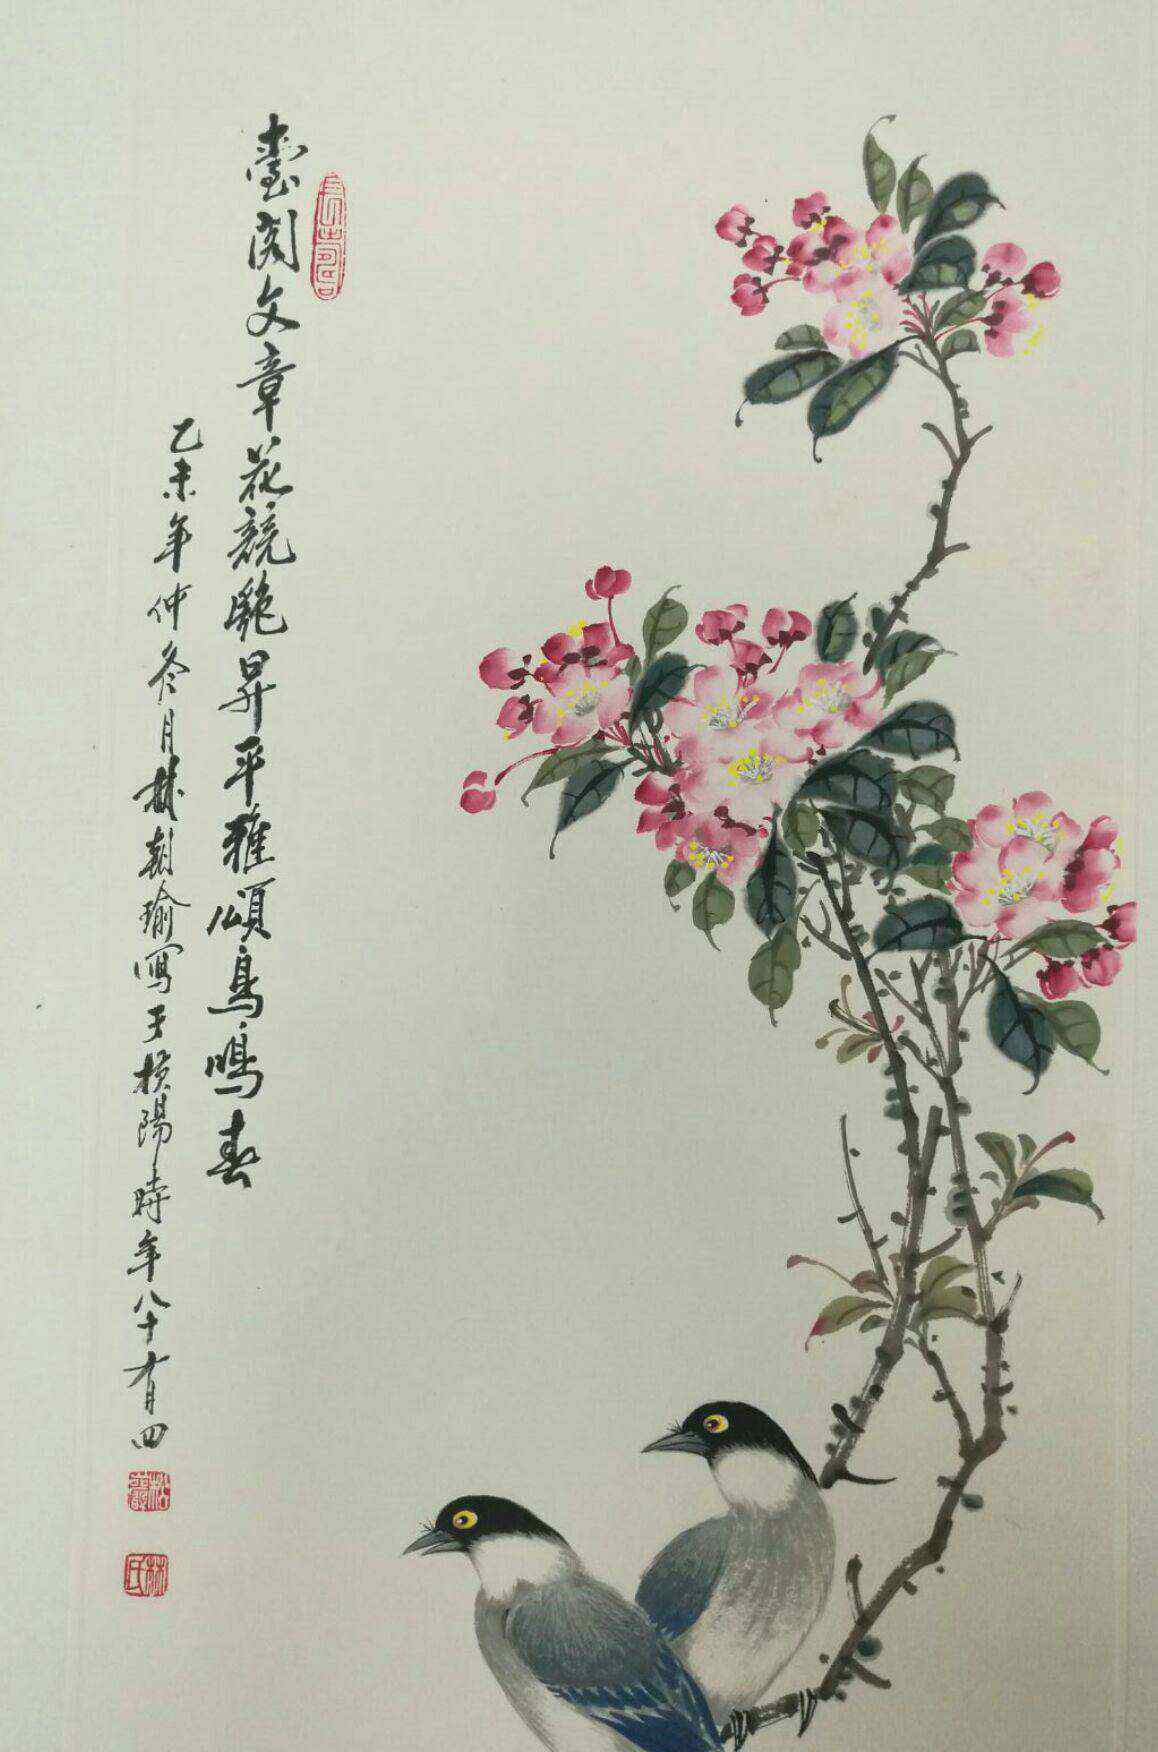 臺阁文章花競艶昇平雅頌鳥鳴春
乙未年仲冬月林朝瑜寫于横陽時年八十有四
林氏